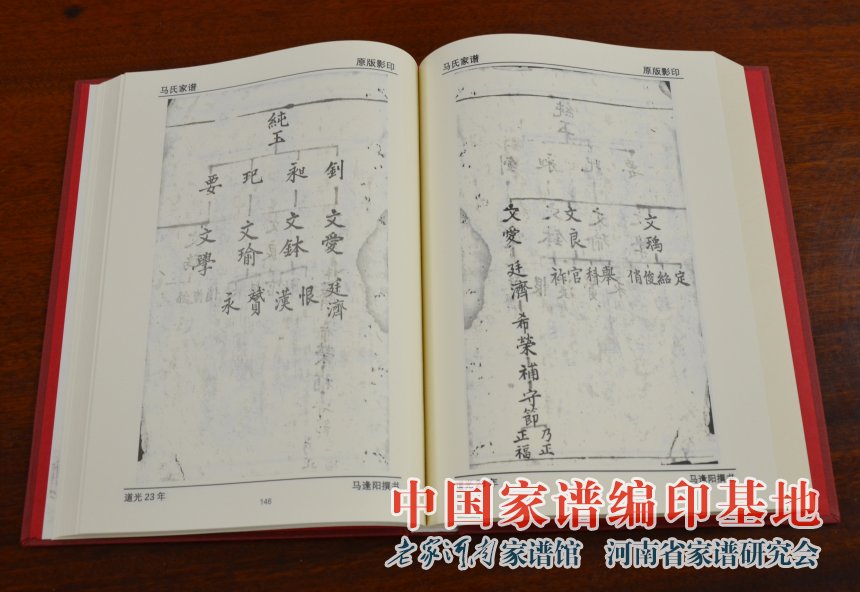 马氏家谱
原版影印
純玉
釗 昶 玘 要
文愛 文鉢 文瑜 文學
廷濟 恨 漢 贇 永
道光 23 年
146
马逢阳撰书
马氏家谱
原版影印
文瑀
定 紹 俊 俏
文良
舉 科 官 祚
文愛
廷濟
希榮
補
守節
乃正
正福
年
马逢阳撰书
中国家谱编印基地
老家河南家谱馆 河南省家谱研究会